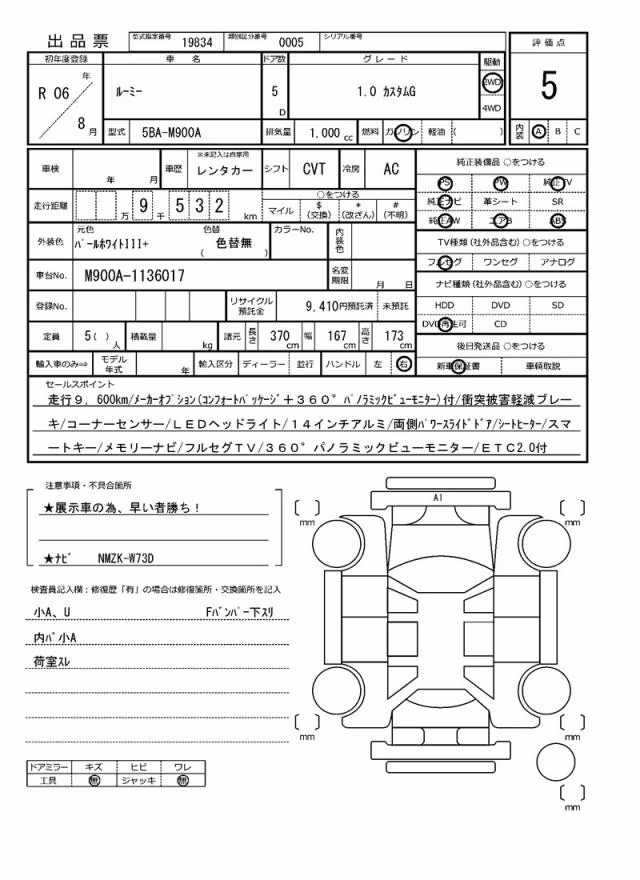 出品票 型式指定番号 19834 類別区分番号 0005 シリアル番号
評価点
初年度登録 車 名 ドア数 グレード 駆動
年 2WD
R 06 ルーミー 5 1.0 カスタムG 5
D 4WD
8 月 型式 5BA-M900A 排気量 1.000 cc 燃料 ガソリン 軽油 ( ) 内装 A B C
車検 年 月 車歴 ※未記入は自家用 レンタカー シフト CVT 冷房 AC 純正装備品 ○をつける
PS PW 純正TV
走行距離 万 9 千 5 3 2 km ○をつける 純正ナビ 革シート SR
マイル $ (交換) * (改ざん) # (不明) 純正AW エアB ABS
外装色 元色 色替 カラーNo. 内装色 TV種類 (社外品含む) ○をつける
パールホワイトIII+ ( 色替無 ) フルセグ ワンセグ アナログ
車台No. M900A-1136017 名変期限 月 日 ナビ種類 (社外品含む) ○をつける
登録No. リサイクル預託金 9,410円預託済 未預託 HDD DVD SD
DVD再生可 CD
定員 5( ) 人 積載量 kg 諸元 長さ 370 cm 幅 167 cm 高さ 173 cm 後日発送品 ○をつける
輸入車のみ⇒ モデル年式 年 輸入区分 ディーラー 並行 ハンドル 左 右 新車保証書 車輌取説
セールスポイント
走行９，600km/メーカーオプション(コンフォートパッケージ＋３６０°パノラミックビューモニター)付/衝突被害軽減ブレー
キ/コーナーセンサー/ＬＥＤヘッドライト/１４インチアルミ/両側パワースライドドア/シートヒーター/スマ
ートキー/メモリーナビ/フルセグＴＶ/３６０°パノラミックビューモニター/ＥＴＣ2.0付
注意事項・不具合箇所
★展示車の為、早い者勝ち！
★ナビ NMZK-W73D
検査員記入欄：修復歴「有」の場合は修復箇所・交換箇所を記入
小A、U Fバンパー下スリ
内バ小A
荷室スレ
ドアミラー キズ ヒビ ワレ
工具 無 ジャッキ 無
A1
mm
mm
mm
mm
mm